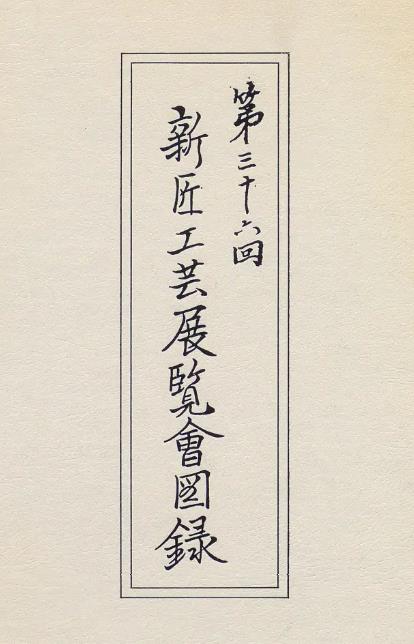 第三十六回
新匠工芸展覧會図録